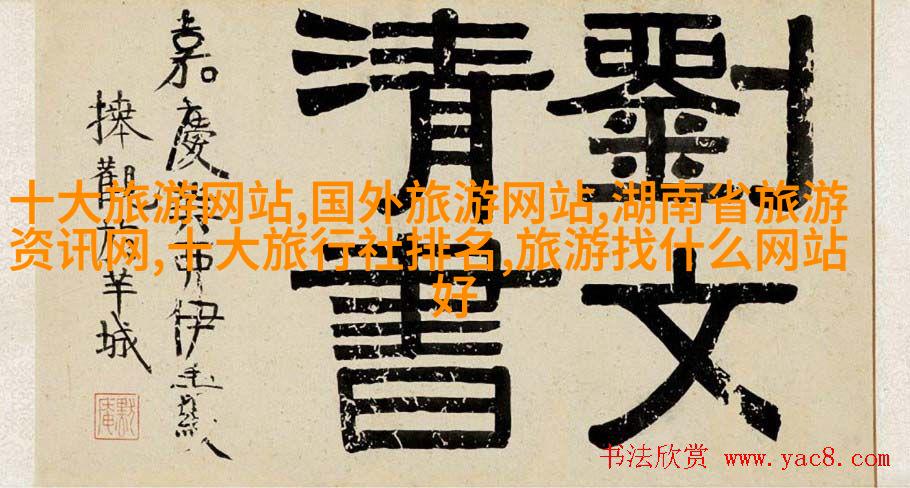 劉文
清書
嘉慶卯伊秉綬
觀於羊城
十大旅游网站,国外旅游网站,湖南省旅游
资讯网,十大旅行社排名,旅游找什么网站
好
书法欣赏 www.yac8.com